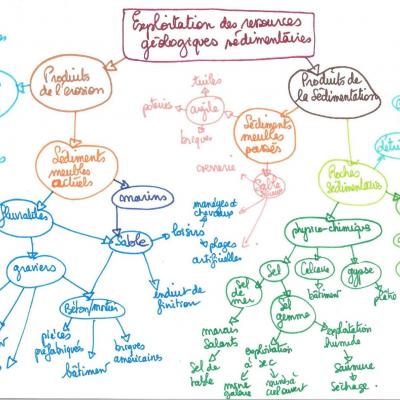 Exploitation des ressources
géologiques sédimentaires
Produits
de l'érosion
Produits de
la Sédimentation
tuiles
poteries
argile
briques
Sédiments
meubles
passés
Sédiments
meubles
actuels
verrerie
Sable
Roches
Sédimentaires
marins
fluviatiles
manèges et
chevaux
loisirs
plages
artificielles
Sable
physico-chimique
graviers
Sel
Calcaire
gypse
Sel
de mer
bâtiment
plâtre
Béton/mortier
enduit de
finition
Sel
gemme
pièces
préfabriquées
bâtiment
briques
américaines
marais
Salants
exploitation
à sec
exploitation
humide
Sel de
table
mine
galerie
mine à
ciel ouvert
Saumure
Séchage